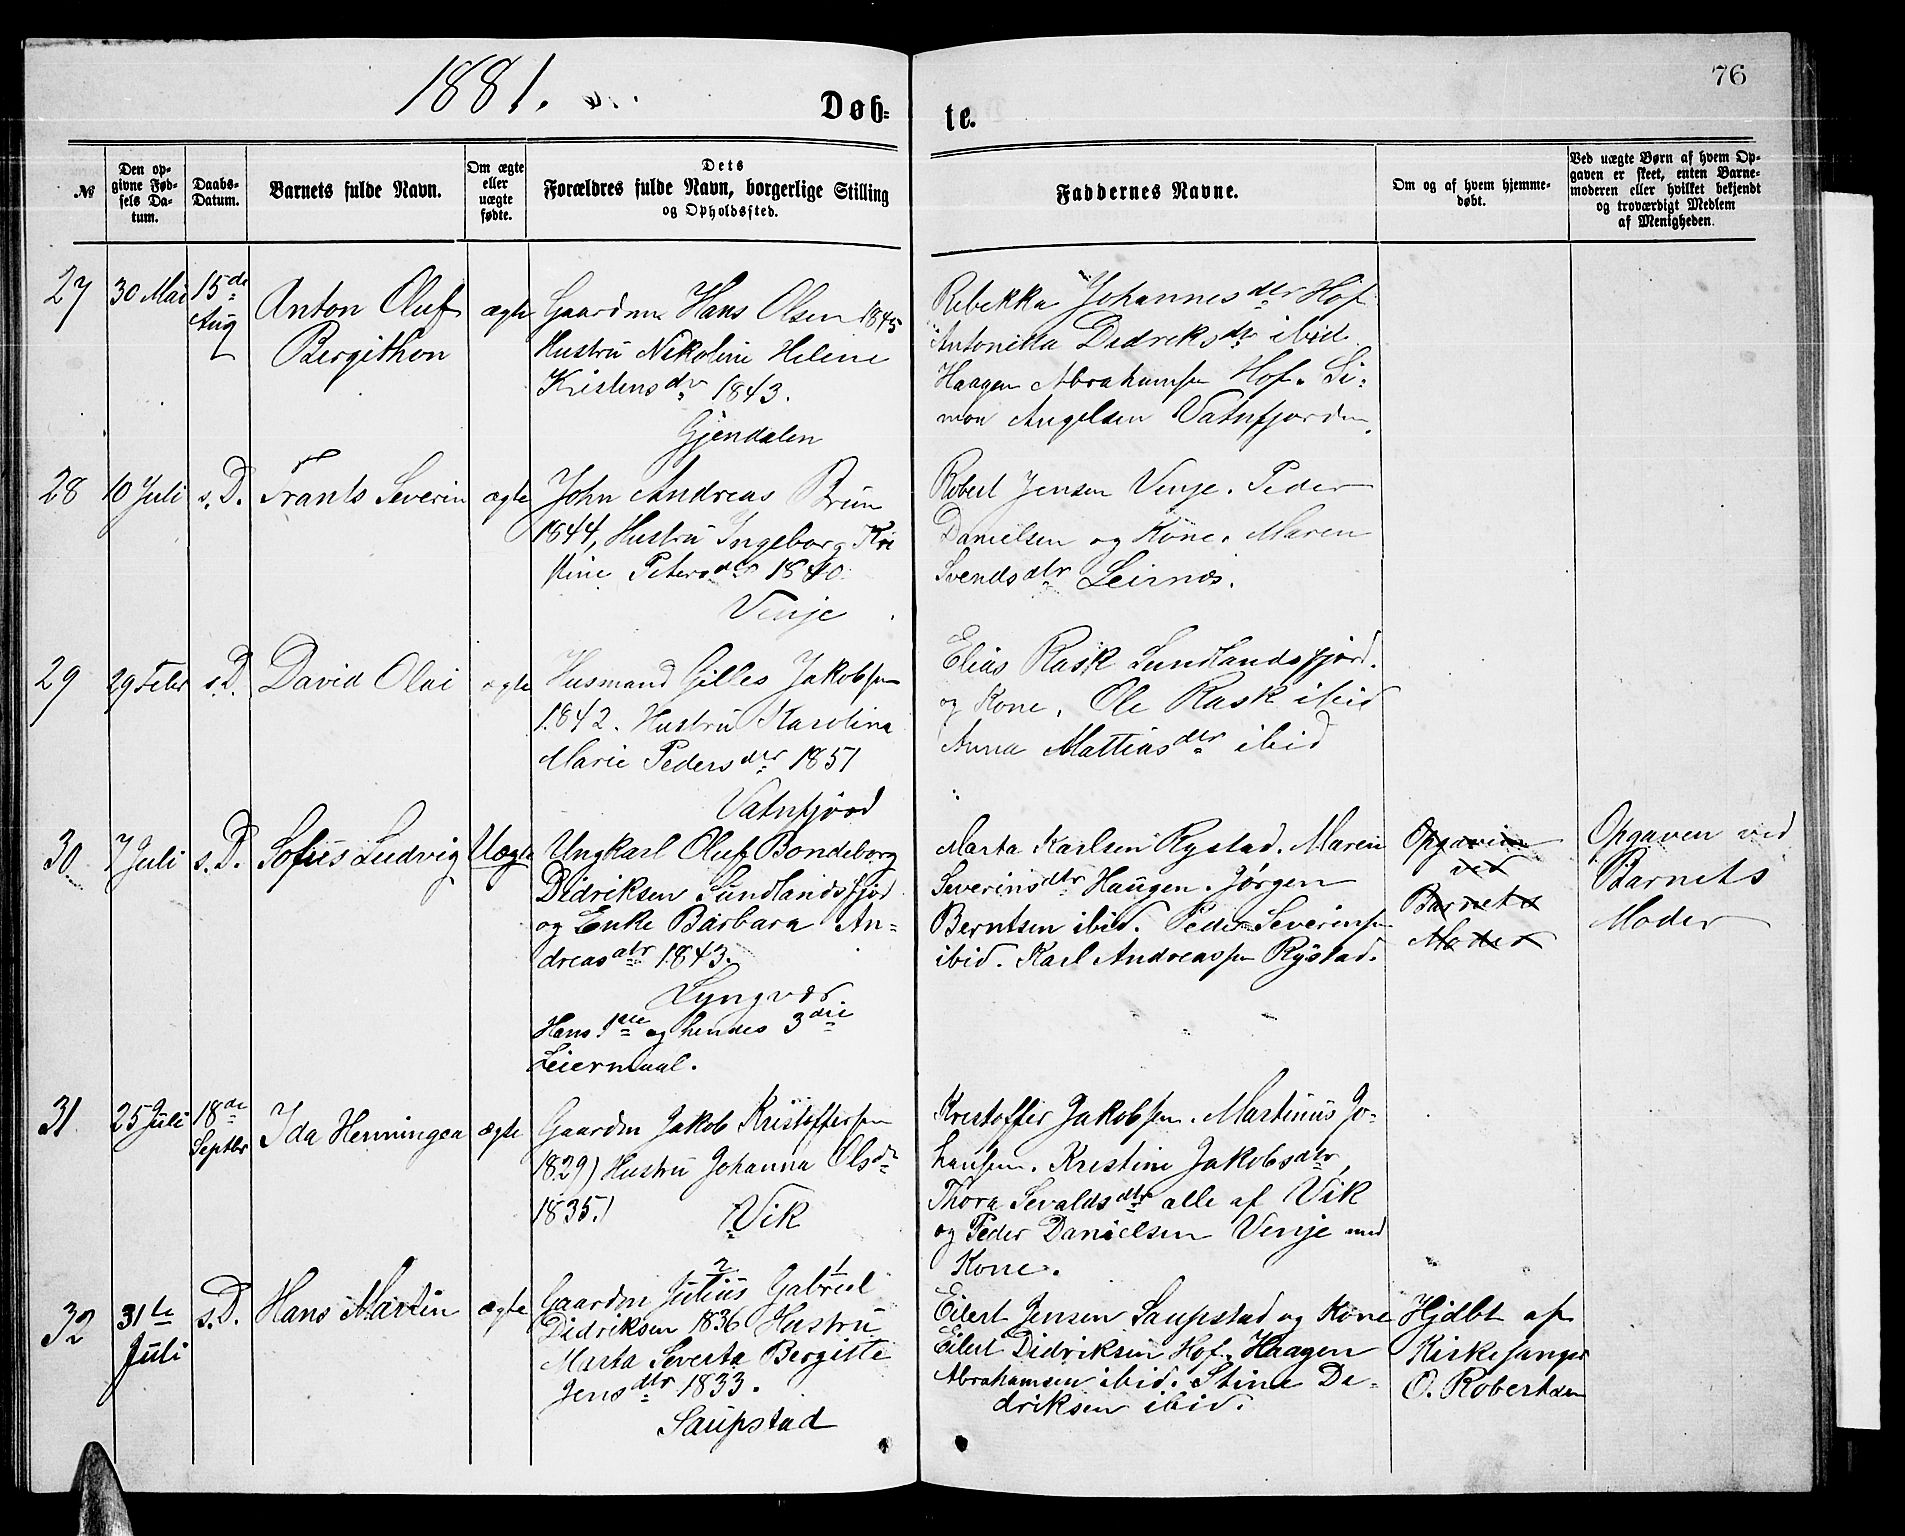 1881.
Døb-
te.
76
№
Den op-
givne Fød-
sels Da-
tum.
Daabs-
Datum.
Barnets fulde Navn.
Om ægte
eller
uægte
fødte.
Dets
Forældres fulde Navn, borgerlige Stilling
og Opholdssted.
Faddernes Navne.
Om og af hvem hjemme-
døbt.
Ved uægte Børn af hvem Op-
gaven er skeet, enten Barne-
moderen eller hvilket bekjendt
og troværdigt Medlem
af Menigheden.
27
30 Mai
15de
Aug
Anton Oluf
Bergithon
ægte
Gaardm Hans Olsen 1845
Hustru Nikoline Helene
Kristensdr 1843.
Gjendalen
Rebekka Johannesdtr Hof
Antonitta Didreksdtr ibid
Haagen Abrahamsen Hof. Si-
mon Angelsen Vatnfjorden.
28
10 Juli
s. D.
Frants Severin
ægte
John Andreas Brun
1844, Hustru Ingeborg Kri
stine Petersdtr 1840.
Venje
Robert Jensen Venje. Peder
Danielsen og Kone. Maren
Svendsdtr Leirnes.
29
29 Febr
s. D.
David Olai
ægte
Husmand Gilles Jakobsen
1842. Hustru Karolina
Marie Pedersdtr 1851
Vatnfjord
Elias Rask Sundlandsfjord.
og Kone. Ole Rask ibid
Anna Mattiasdtr ibid
30
7 Juli
s. D.
Sofus Ludvig
Uægte
Ungkarl Oluf Bondeborg
Didriksen Sundlandsfjord
og Enke Barbara An-
dreasdtr 1843.
Lyngvær
Hans 1ste og hendes 3die
Leiermaal.
Marta Karlsen Rystad. Maren
Severinsdtr Haugen. Jørgen
Berntsen ibid. Peder Severinsen
ibid. Karl Andreassen Rystad.
Opgaven
ved
Barnets
Moder
Opgaven ved
Barnets
Moder
31
25 Juli
18de
Septbr
Ida Henningea
ægte
Gaardm Jakob Kristoffersen
1829) Hustru Johanna Olsdr
1835.)
Vik
Kristoffer Jakobsen. Martinus Jo-
hansen. Kristine Jakobsdtr,
Thora Sevaldsdtr alle af Vik
og Peder Danielsen Venje med
Kone.
32
31te
Juli
s. D.
Hans Martin
ægte
2 1
Gaardm Julius Gabriel
Didriksen 1836 Hustru
Marta Severta Bergitte
Jensdtr 1833.
Saupstad
Eilert Jensen Saupstad og Kone
Eilert Didriksen Hof. Haagen
Abrahamsen ibid. Stina De-
driksen ibid.
Hjdbt af
Kirkesanger
O. Robertsen